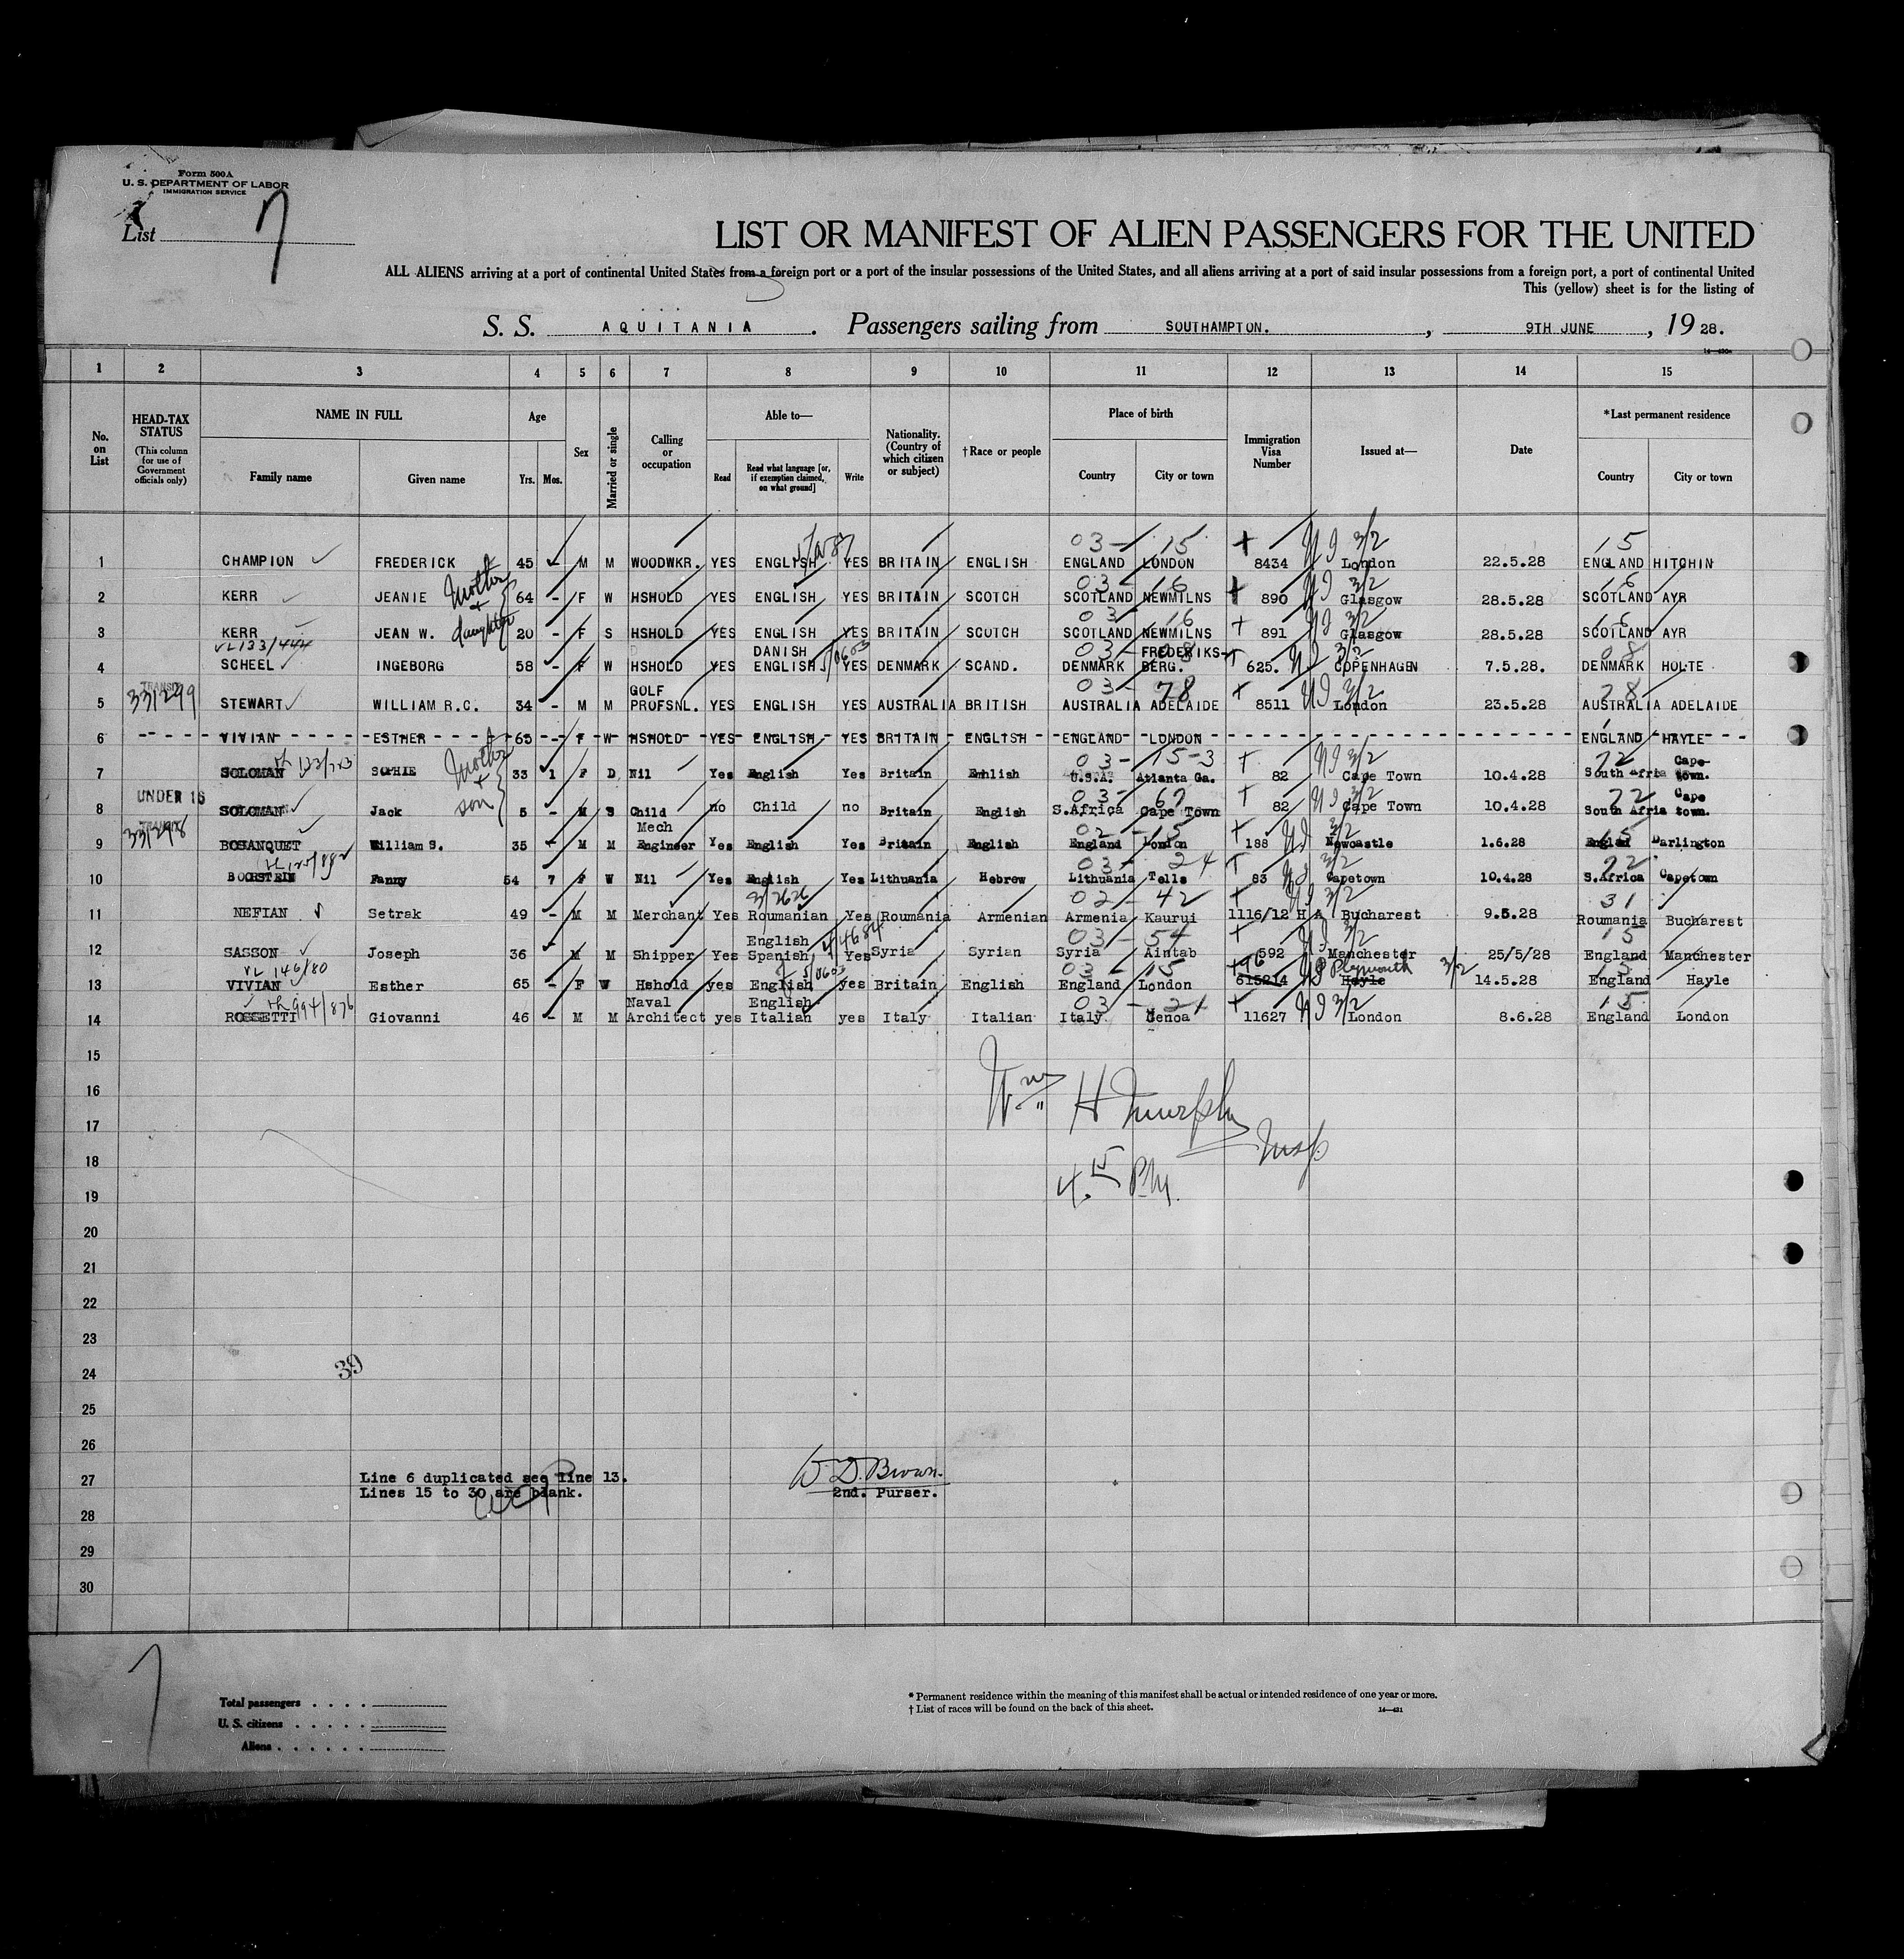 Form 500A
U. S. DEPARTMENT OF LABOR
IMMIGRATION SERVICE
List 7
LIST OR MANIFEST OF ALIEN PASSENGERS FOR THE UNITED
ALL ALIENS arriving at a port of continental United States from a foreign port or a port of the insular possessions of the United States, and all aliens arriving at a port of said insular possessions from a foreign port, a port of continental United
This (yellow) sheet is for the listing of
S. S. AQUITANIA. Passengers sailing from SOUTHAMPTON., 9TH JUNE, 19 28.
1 2 3 4 5 6 7 8 9 10 11 12 13 14 15
No. on List
HEAD-TAX STATUS
(This column for use of Government officials only)
NAME IN FULL
Family name Given name
Age
Yrs. Mos.
Sex
Married or single
Calling or occupation
Able to—
Read Read what language [or, if exemption claimed, on what ground] Write
Nationality. (Country of which citizen or subject)
†Race or people
Place of birth
Country City or town
Immigration Visa Number
Issued at—
Date
*Last permanent residence
Country City or town
03 - 15 NI 3/2 15
1 CHAMPION FREDERICK 45 M M WOODWKR. YES ENGLISH YES BRITAIN ENGLISH ENGLAND LONDON 8434 London 22.5.28 ENGLAND HITCHIN
Mother + daughter
03 - 16 NI 3/2 16
2 KERR JEANIE 64 - F W HSHOLD YES ENGLISH YES BRITAIN SCOTCH SCOTLAND NEWMILNS 890 Glasgow 28.5.28 SCOTLAND AYR
03 16 NI 3/2 16
3 KERR JEAN W. 20 - F S HSHOLD YES ENGLISH YES BRITAIN SCOTCH SCOTLAND NEWMILNS 891 Glasgow 28.5.28 SCOTLAND AYR
VL 133/444 DANISH 5/0603 03 - 08 FREDERIKS- NI 3/2 08
4 SCHEEL INGEBORG 58 - F W HSHOLD YES ENGLISH YES DENMARK SCAND. DENMARK BERG. 625. COPENHAGEN 7.5.28. DENMARK HOLTE
TRANSIT 33/299 GOLF 03 - 78 NI 3/2 78
5 STEWART WILLIAM R.C. 34 - M M PROFSNL. YES ENGLISH YES AUSTRALIA BRITISH AUSTRALIA ADELAIDE 8511 London 23.5.28 AUSTRALIA ADELAIDE
6 VIVIAN ESTHER 65 - F W HSHOLD YES ENGLISH YES BRITAIN ENGLISH ENGLAND LONDON ENGLAND HAYLE
Mother + son 03 - 15-3 NI 3/2 72 Cape-
7 SOLOMAN SOPHIE 33 1 F D Nil Yes English Yes Britain Enhlish U.S.A. Atlanta Ga. 82 Cape Town 10.4.28 South Afria town.
UNDER 16 03 - 67 NI 3/2 72 Cape
8 SOLOMAN Jack 5 - M S Child no Child no Britain English S.Africa Cape Town 82 Cape Town 10.4.28 South Afria town.
TRANSIT 33/298 Mech 02 - 15 NI 3/2 15
9 BOSANQUET William S. 35 - M M Engineer Yes English Yes Britain English England London 188 Newcastle 1.6.28 Englad Darlington
03 - 24 NI 3/2 72
10 BOORSTEIN Fanny 54 7 F W Nil Yes English Yes Lithuania Hebrew Lithuania Tells 83 Capetown 10.4.28 S.Africa Capetown
3/2626 02 - 42 NI 3/2 31
11 NEFIAN Setrak 49 - M M Merchant Yes Roumanian Yes Roumania Armenian Armenia Kaurui 1116/12 H A Bucharest 9.5.28 Roumania Bucharest
English 4/4684 03 - 54 NI 3/2 15
12 SASSON Joseph 36 M M Shipper Yes Spanish Yes Syria Syrian Syria Aintab 592 Manchester 25/5/28 England Manchester
VL 146/80 5/0603 03 - 15 96 Plymouth 3/2 15
13 VIVIAN Esther 65 - F W Hshold yes English yes Britain English England London 615214 Hayle 14.5.28 England Hayle
Naval English 03 - 21 NI 3/2 15
14 ROSSETTI Giovanni 46 - M M Architect yes Italian yes Italy Italian Italy Genoa 11627 London 8.6.28 England London
15
16
Wm H Murphy
17
Insp
18
4.15 PM.
19
20
21
22
23
24
39
25
26
27
Line 6 duplicated see line 13. W. D. Brown.
Lines 15 to 30 are blank. 2nd. Purser.
28
29
30
7
Total passengers
U. S. citizens
Aliens
* Permanent residence within the meaning of this manifest shall be actual or intended residence of one year or more.
† List of races will be found on the back of this sheet.
14—431